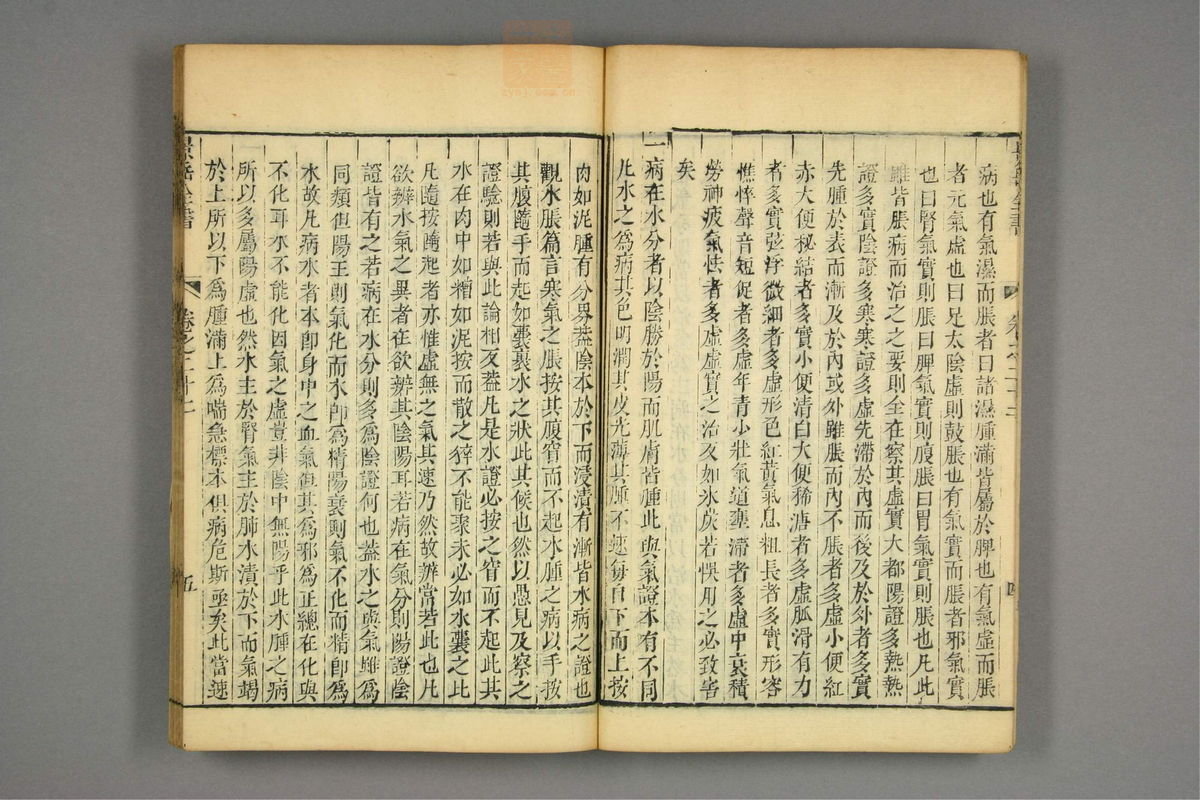 病也有氣濕而脹者曰諸濕腫滿皆屬於脾也有氣虛而脹
者元氣虛也曰足太陰虛則鼓脹也有氣實而脹者邪氣實
也曰腎氣實則脹曰脾氣實則腹脹曰胃氣實則脹也凡此
雖皆脹病而治之之要則全在察其虛實大都陽證多熱熱
證多實陰證多寒寒證多虛先滯於內而後及於外者多實
先腫於表而漸及於內或外雖脹而內不脹者多虛小便紅
赤大便秘結者多實小便清白大便稀溏者多虛脈滑有力
者多實弦浮微細者多虛形色紅黃氣息粗長者多實形容
憔悴聲音短促者多虛年青小壯氣道壅滯者多虛中衰積
勞神疲氣怯者多虛虛實之治反如氷炭若悞用之必致害
矣
一病在水分者以陰勝於陽而肌膚皆腫此與氣證本有不同
凡水之爲病其色明潤其皮光薄其腫不速每自下而上按
肉如泥腫有分界葢陰本於下而浸漬有漸皆水病之證也
觀水脹篇言寒氣之脹按其腹窅而不起水腫之病以手按
其腹隨手而起如囊裹水之狀此其候也然以愚見及察之
證驗則若與此論相反葢凡是水證必按之窅而不起此其
水在肉中如糟如泥按而散之猝不能聚未必如水囊之此
凡隨按隨起者亦惟虛無之氣其速乃然故辨當若此也凡
欲辨水氣之異者在欲辨其陰陽耳若病在氣分則陽證陰
證皆有之若病在水分則多爲陰證何也葢水之與氣雖爲
同類但陽王則氣化而水卽爲精陽衰則氣不化而精卽爲
水故凡病水者本卽身中之血氣但其爲邪爲正總在化與
不化耳水不能化因氣之虛豈非陰中無陽乎此水腫之病
所以多屬陽虛也然水主於腎氣主於肺水漬於下而氣竭
於上所以下爲腫滿上爲喘急標本俱病危斯亟矣此當速
景岳全書
卷之二十二
五